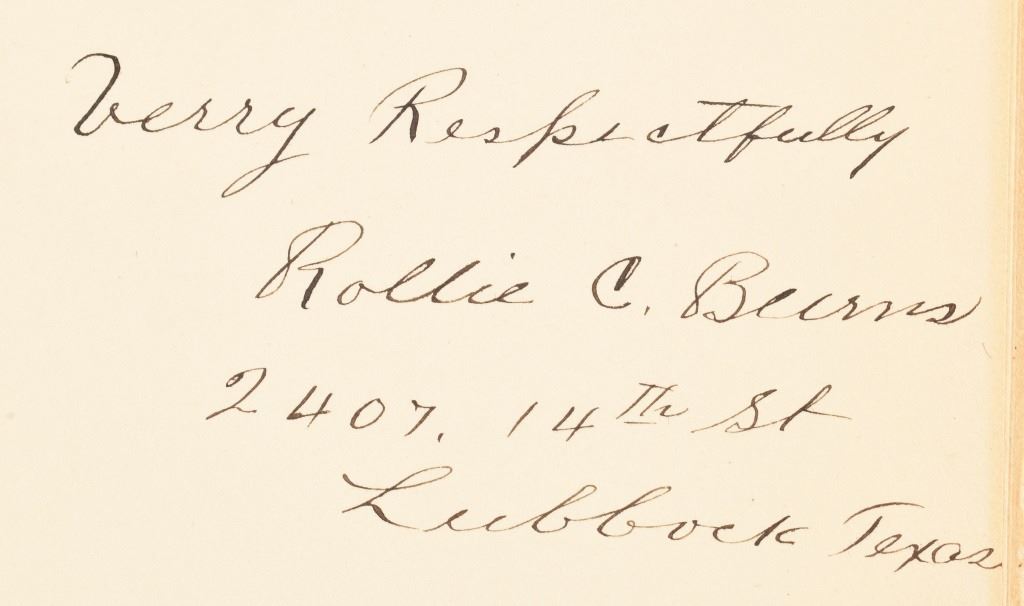 Verry Respectfully
Rollie C. Burns
2407. 14th St
Lubbock Texas